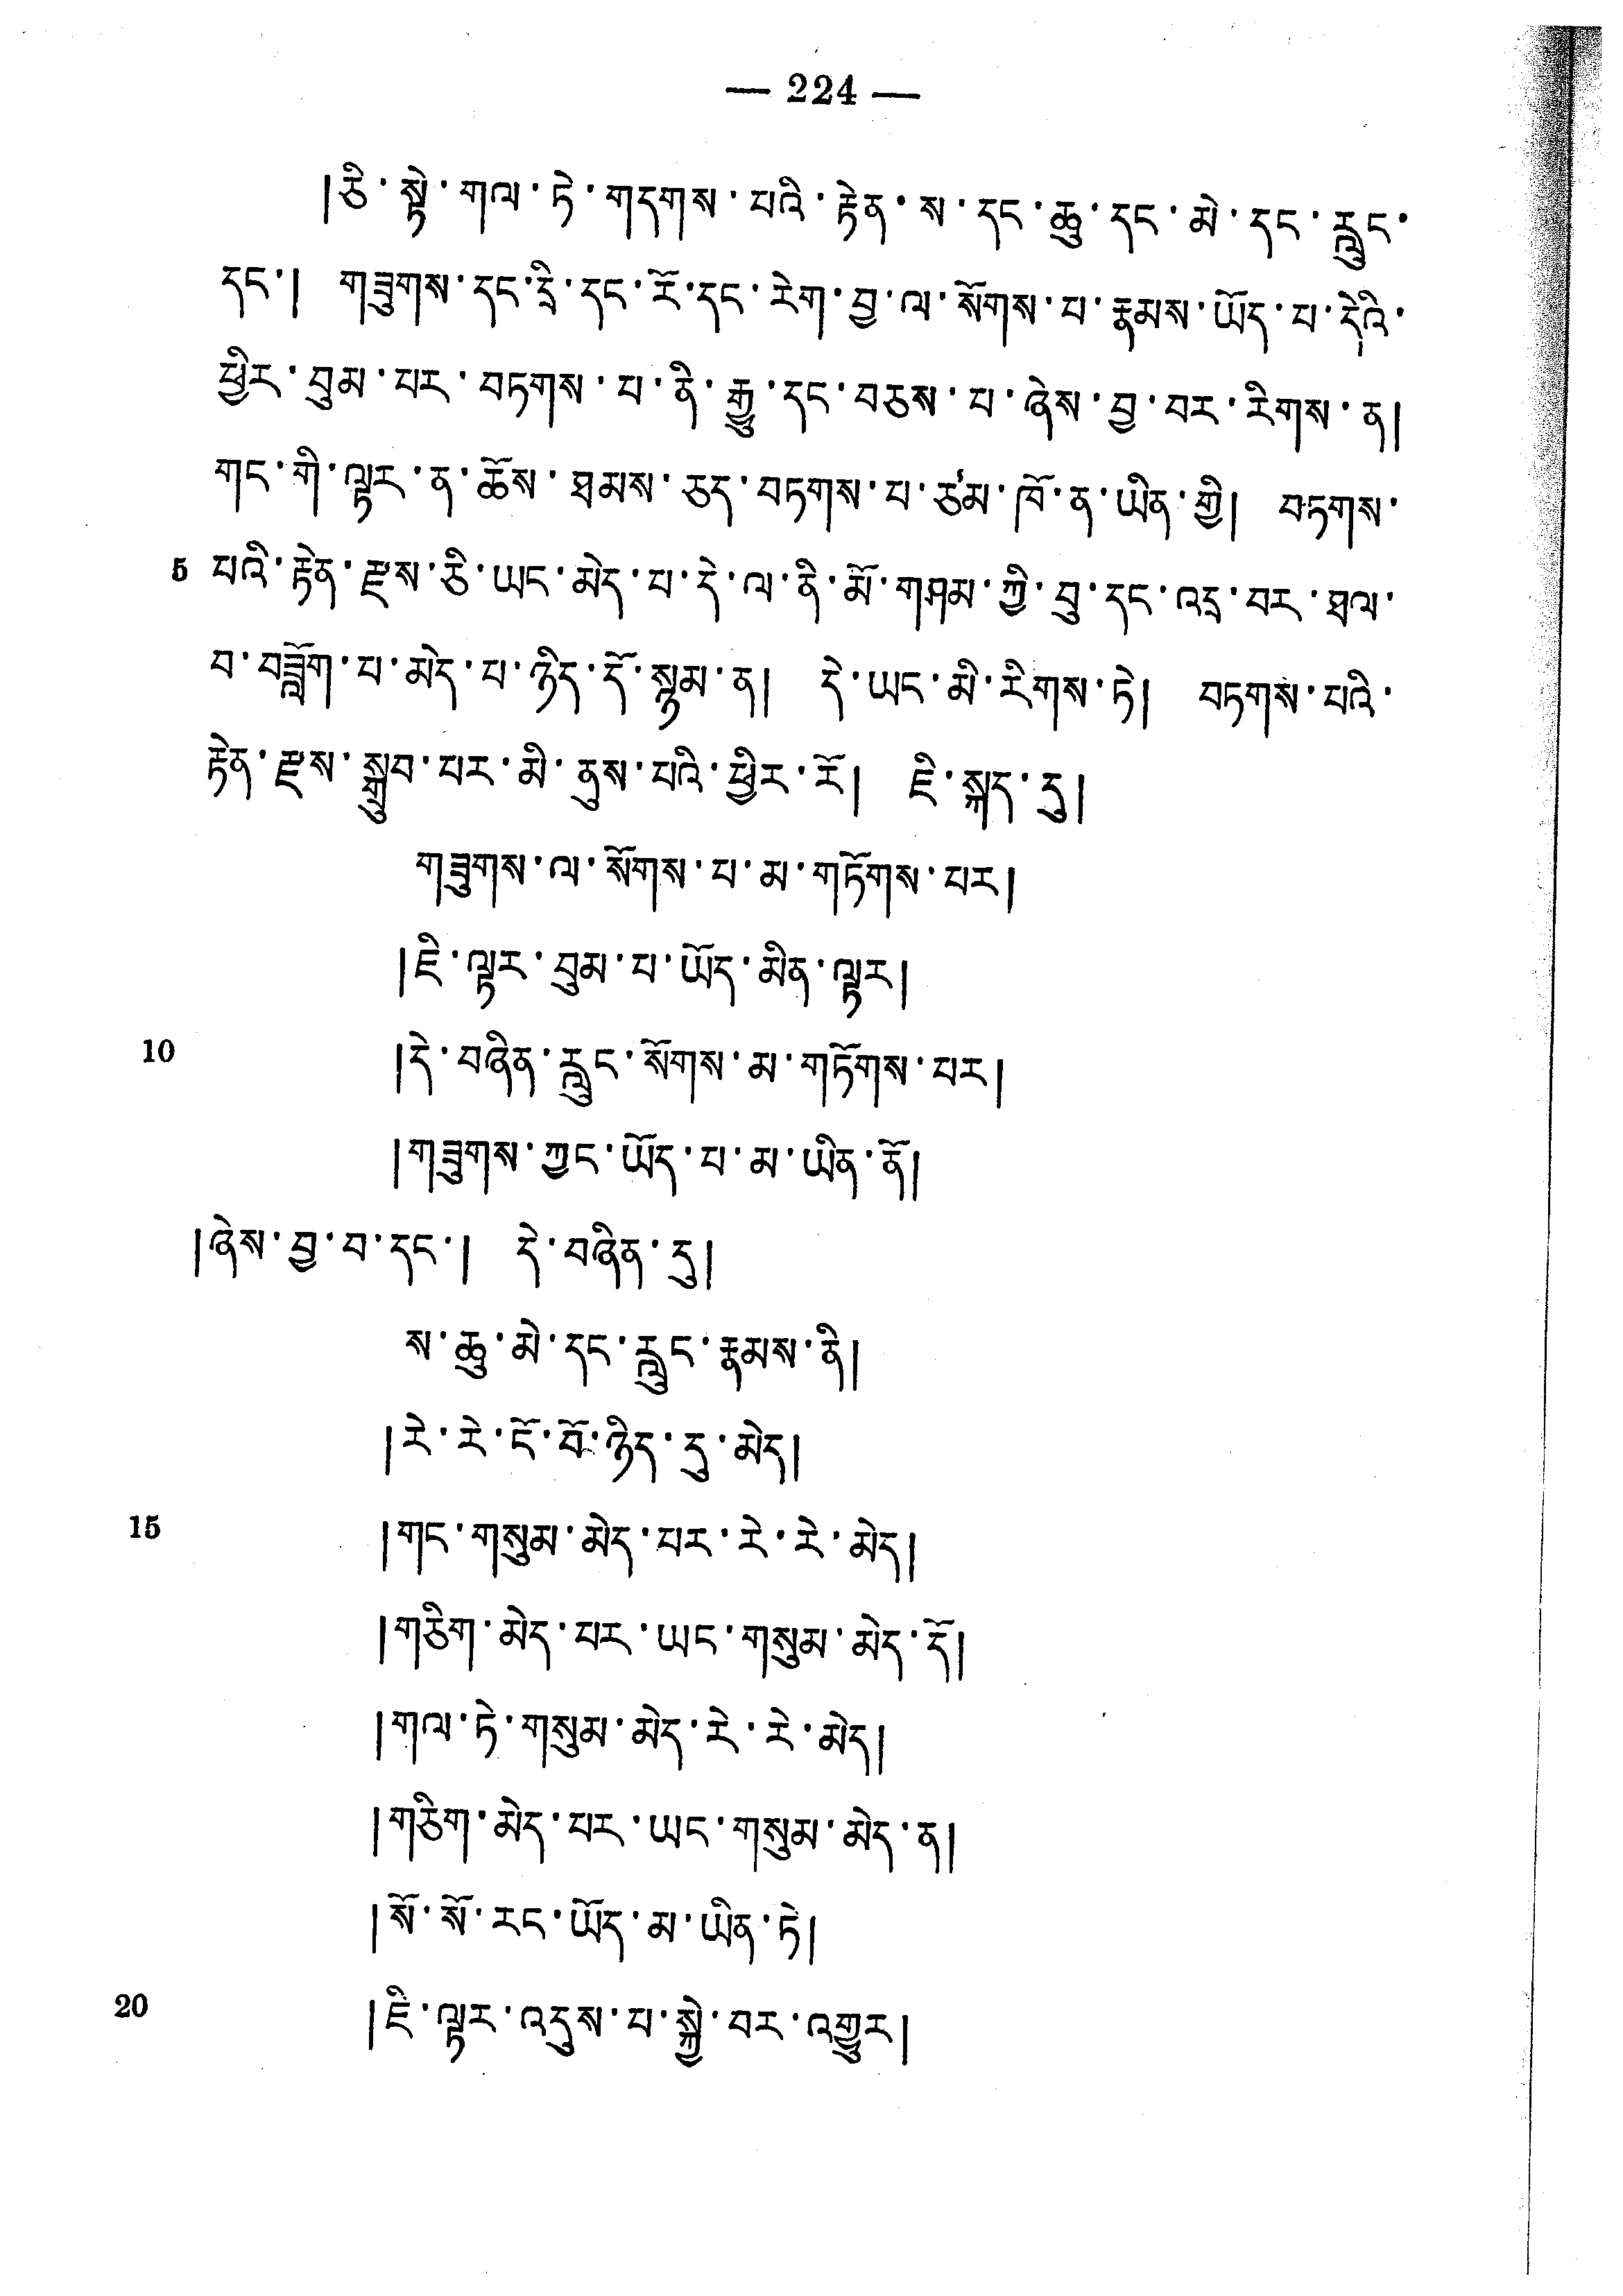 — 224 —
།ཅི་སྟེ་གལ་ཏེ་གདགས་པའི་རྟེན་ས་དང་ཆུ་དང་མེ་དང་རླུང་
དང་། གཟུགས་དང་དྲི་དང་རོ་དང་རེག་བྱ་ལ་སོགས་པ་རྣམས་ཡོད་པ་དེའི་
ཕྱིར་བུམ་པར་བཏགས་པ་ནི་རྒྱུ་དང་བཅས་པ་ཞེས་བྱ་བར་རིགས་ན།
གང་གི་ལྟར་ན་ཆོས་ཐམས་ཅད་བཏགས་པ་ཙམ་ཁོ་ན་ཡིན་གྱི། བཏགས་
5 པའི་རྟེན་རྫས་ཅི་ཡང་མེད་པ་དེ་ལ་ནི་མོ་གཤམ་ཀྱི་བུ་དང་འདྲ་བར་ཐལ་
བ་བཟློག་པ་མེད་པ་ཉིད་དོ་སྙམ་ན། དེ་ཡང་མི་རིགས་ཏེ། བཏགས་པའི་
རྟེན་རྫས་སྒྲུབ་པར་མི་ནུས་པའི་ཕྱིར་རོ། ཇི་སྐད་དུ།
གཟུགས་ལ་སོགས་པ་མ་གཏོགས་པར།
།ཇི་ལྟར་བུམ་པ་ཡོད་མིན་ལྟར།
10 །དེ་བཞིན་རླུང་སོགས་མ་གཏོགས་པར།
།གཟུགས་ཀྱང་ཡོད་པ་མ་ཡིན་ནོ།
།ཞེས་བྱ་བ་དང་། དེ་བཞིན་དུ།
ས་ཆུ་མེ་དང་རླུང་རྣམས་ནི།
།རེ་རེ་ངོ་བོ་ཉིད་དུ་མེད།
15 །གང་གསུམ་མེད་པར་རེ་རེ་མེད།
།གཅིག་མེད་པར་ཡང་གསུམ་མེད་དོ།
།གལ་ཏེ་གསུམ་མེད་རེ་རེ་མེད།
།གཅིག་མེད་པར་ཡང་གསུམ་མེད་ན།
།སོ་སོ་རང་ཡོད་མ་ཡིན་ཏེ།
20 །ཇི་ལྟར་འདུས་པ་སྐྱེ་བར་འགྱུར།